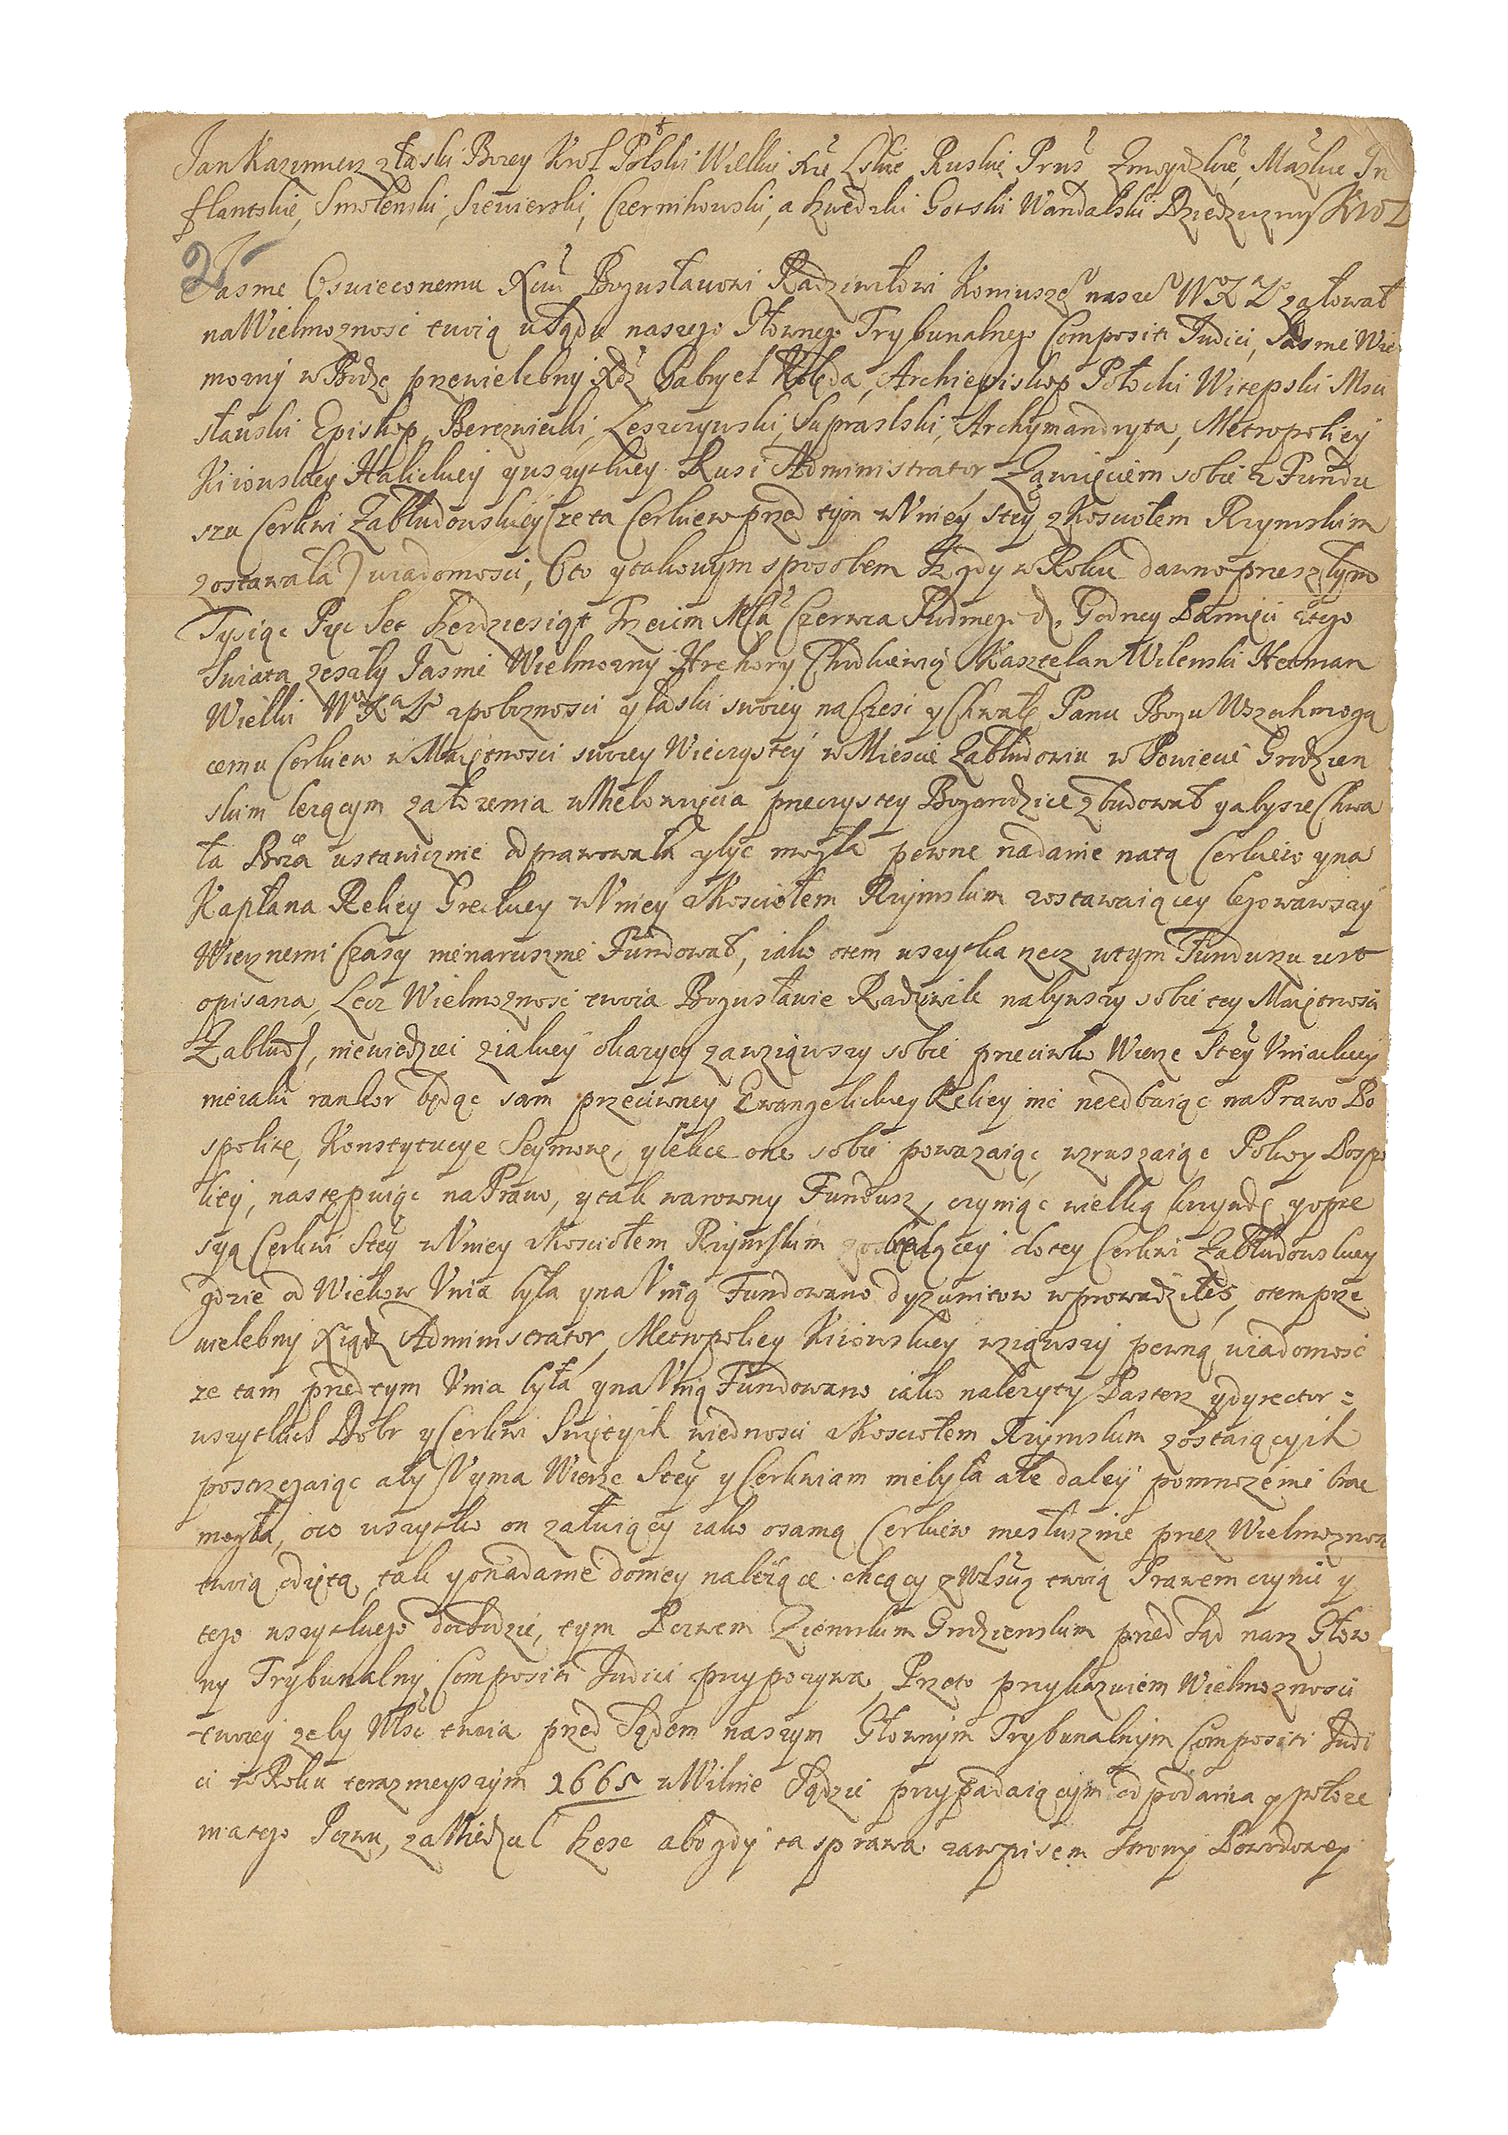 Jan Kazimierz z łaski Bozey Krol Polski Wielkie Xże Lskie Ruskie Prus Zmoydzkie, Mazkie In
flantskie, Smolenski, Siewierski, Czernihowski, a Szwedzki Gotski Wandalski Dziedziczny Krol
2
Jasnie Oswieconemu Xciu Bogusławowi Radziwiłowi Koniusze nasze WXL załował
na Wielmoznosc twoią u Sądu naszego Głownego Trybunalnego Compositi Iudici, Jasnie Wie
mozny w Bodze przewielebny Xdz Gabryel Kolęda, Archiepiskop Połocki Witepski Msci
sławski Episkop, Berezwecki, Leszczynski, Supraslski, Archymandryta, Metropoliey
Kiiowskiey Halickiey y wszytkiey Rusi Administrator, Zawzięciem sobie z Fundu
szu Cerkwi Zabłudowskiey (ze ta Cerkiew przed tym w Vniey stey z Kosciołem Rzymskim
zostawała) wiadomosci, Oto y takowym sposobem Iz gdy w Roku dawno przeszłym
Tysiąc Pięc Set Szesdziesiąt Trzecim Msca Czerwca Siudmego d. Godney Pamięci z tego
Swiata zeszły Jasnie Wielmozny Hrehory Chodkiewicz Kasztelan Wilenski Hetman
Wielki WXL z poboznosci y łaski swoiey na Czesc y Chwałę Panu Bogu Wszechmogą
cemu Cerkiew w Maiętnosci swoiey Wieczystey w Miescie Zabłudowiu w Powiecie Grodzien
skim lezącym załozenia Wniebowzięcia przeczystey Bogarodzice zbudował y aby sie Chwa
ła Boża ustawicznie odprawowała y byc mogła pewne nadanie na tą Cerkiew y na
Kapłana Reliey Greckiey w Vniey z Kosciołem Rzymskim zostawaiącey legowawszy
Wiecznemi Czasy nienarusznie Fundował, iako o tem wszytka rzecz w tym Funduszu iest
opisana, Lecz Wielmoznosc twoia Bogusławie Radziwile nabywszy sobie tey Maiętnosci
Zabłud, niewiedziec z iakiey okazyey zawziąwszy sobie przeciwko Wierze Stey Vniackiey
nieiaki rankor będąc sam przeciwney Ewangelickiey Reliey nic niedbaiąc na Prawo Po
spolite, Konstytucye Seymowe, y lekce one sobie powazaiąc, wzruszaiąc Pokoy Pospo
lity, nastepuiąc na Prawo, y tak warowny Fundusz, czyniąc wielką krzywdę y opre
syą Cerkwi Stey w Vniey z Kosciołem Rzymskim będącey do tey Cerkwi Zabłudowskiey
gdzie od Wiekow Vnia była y na Vnią Fundowano dyzunitow wprowadziłes, o tem prze
wielebny Xiądz Administrator, Metropoliey Kiiowskiey wziąwszy pewną wiadomosc
ze tam przed tym Vnia była y na Vnią Fundowano iako nalezyty Pasterz y dyrector =
wszytkich Dobr y Cerkwi Swiętych w iednosci z Kosciołem Rzymskim zostaiących
postrzegaiąc aby Vyma Wierze Stey y Cerkwiam niebyła ale daley pomnozenie brac
mogła, oco wszytko on załuiący iako o samą Cerkiew niesłusznie przez Wielmoznosc
twoią odiętą, tak y o nadanie do niey nalezące chcący z Wścią twoią Prawem czynic y
tego wszytkiego dochodzic, tym Pozwem Ziemskim Grodzienskim przed Sąd nasz Głow
ny Trybunalny Compositi Iudici przypozywa, Przeto przykazuiem Wielmoznosci
twoiey zeby Wsc twoia przed Sądem naszym Głownym Trybunalnym Compositi Iudi
ci w Roku teraznieyszym 1665 w Wilnie Sądzic przypadaiącym od podania y połoze
nia tego Pozwu, za Niedziel Szesc abo gdy ta sprawa za wpisem Strony Powodowey